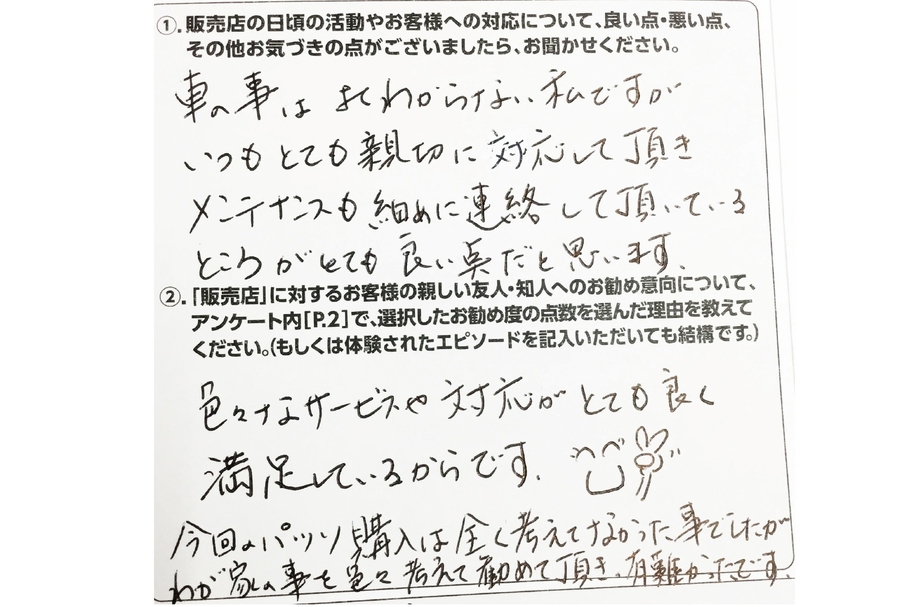 ①.販売店の日頃の活動やお客様への対応について、良い点・悪い点、
その他お気づきの点がございましたら、お聞かせください。
車の事は よくわからない私ですが
いつもとても親切に対応して頂き
メンテナンスも細めに連絡して頂いている
ところがとても良い点だと思います。
②.「販売店」に対するお客様の親しい友人・知人へのお勧め意向について、
アンケート内[P.2]で、選択したお勧め度の点数を選んだ理由を教えて
ください。(もしくは体験されたエピソードを記入いただいても結構です。)
色々なサービスや対応がとても良く
満足しているからです。
今回のパッソ購入は全く考えてなかった事でしたが
わが家の事を色々考えて勧めて頂き、有難かったです。